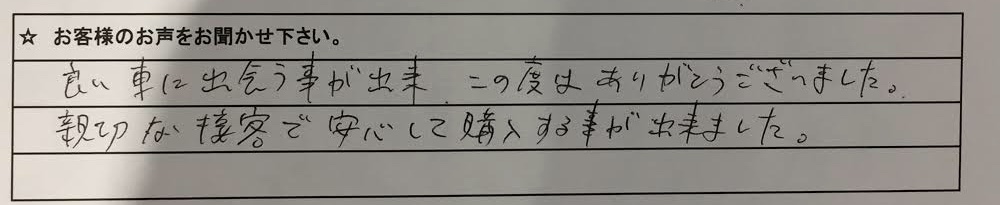 ☆ お客様のお声をお聞かせ下さい。
良い車に出会う事が出来、この度はありがとうございました。
親切な接客で安心して購入する事が出来ました。